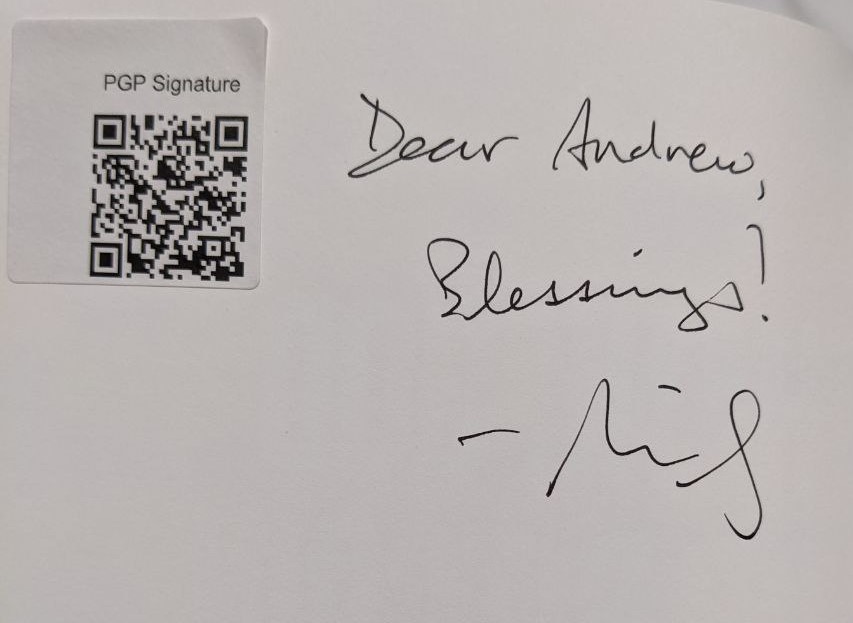 PGP Signature
Dear Andrew,
Blessings!